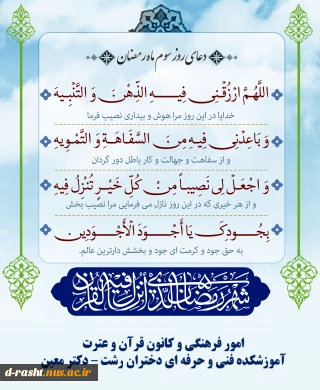 دعای روز سوم ماه رمضان
اللَّهُمَّ ارْزُقْنِی فِیهِ الذِّهْنَ وَ التَّنْبِیهَ
خدایا در این روز مرا هوش و بیداری نصیب فرما
وَ بَاعِدْنِی فِیهِ مِنَ السَّفَاهَةِ وَ التَّمْوِیهِ
و از سفاهت و جهالت و کار باطل دور گردان
وَ اجْعَلْ لِی نَصِیباً مِنْ کُلِّ خَیْرٍ تُنْزِلُ فِیهِ
و از هر خیری که در این روز نازل می فرمایی مرا نصیب بخش
بِجُودِکَ یَا أَجْوَدَ الْأَجْوَدِینَ
به حق جود و کرمت ای جود و بخشش دارترین عالم.
شهر رمضان الذی انزل فیه القرآن
امور فرهنگی و کانون قرآن و عترت
آموزشکده فنی و حرفه ای دختران رشت - دکتر معین
d-rasht.nus.ac.ir